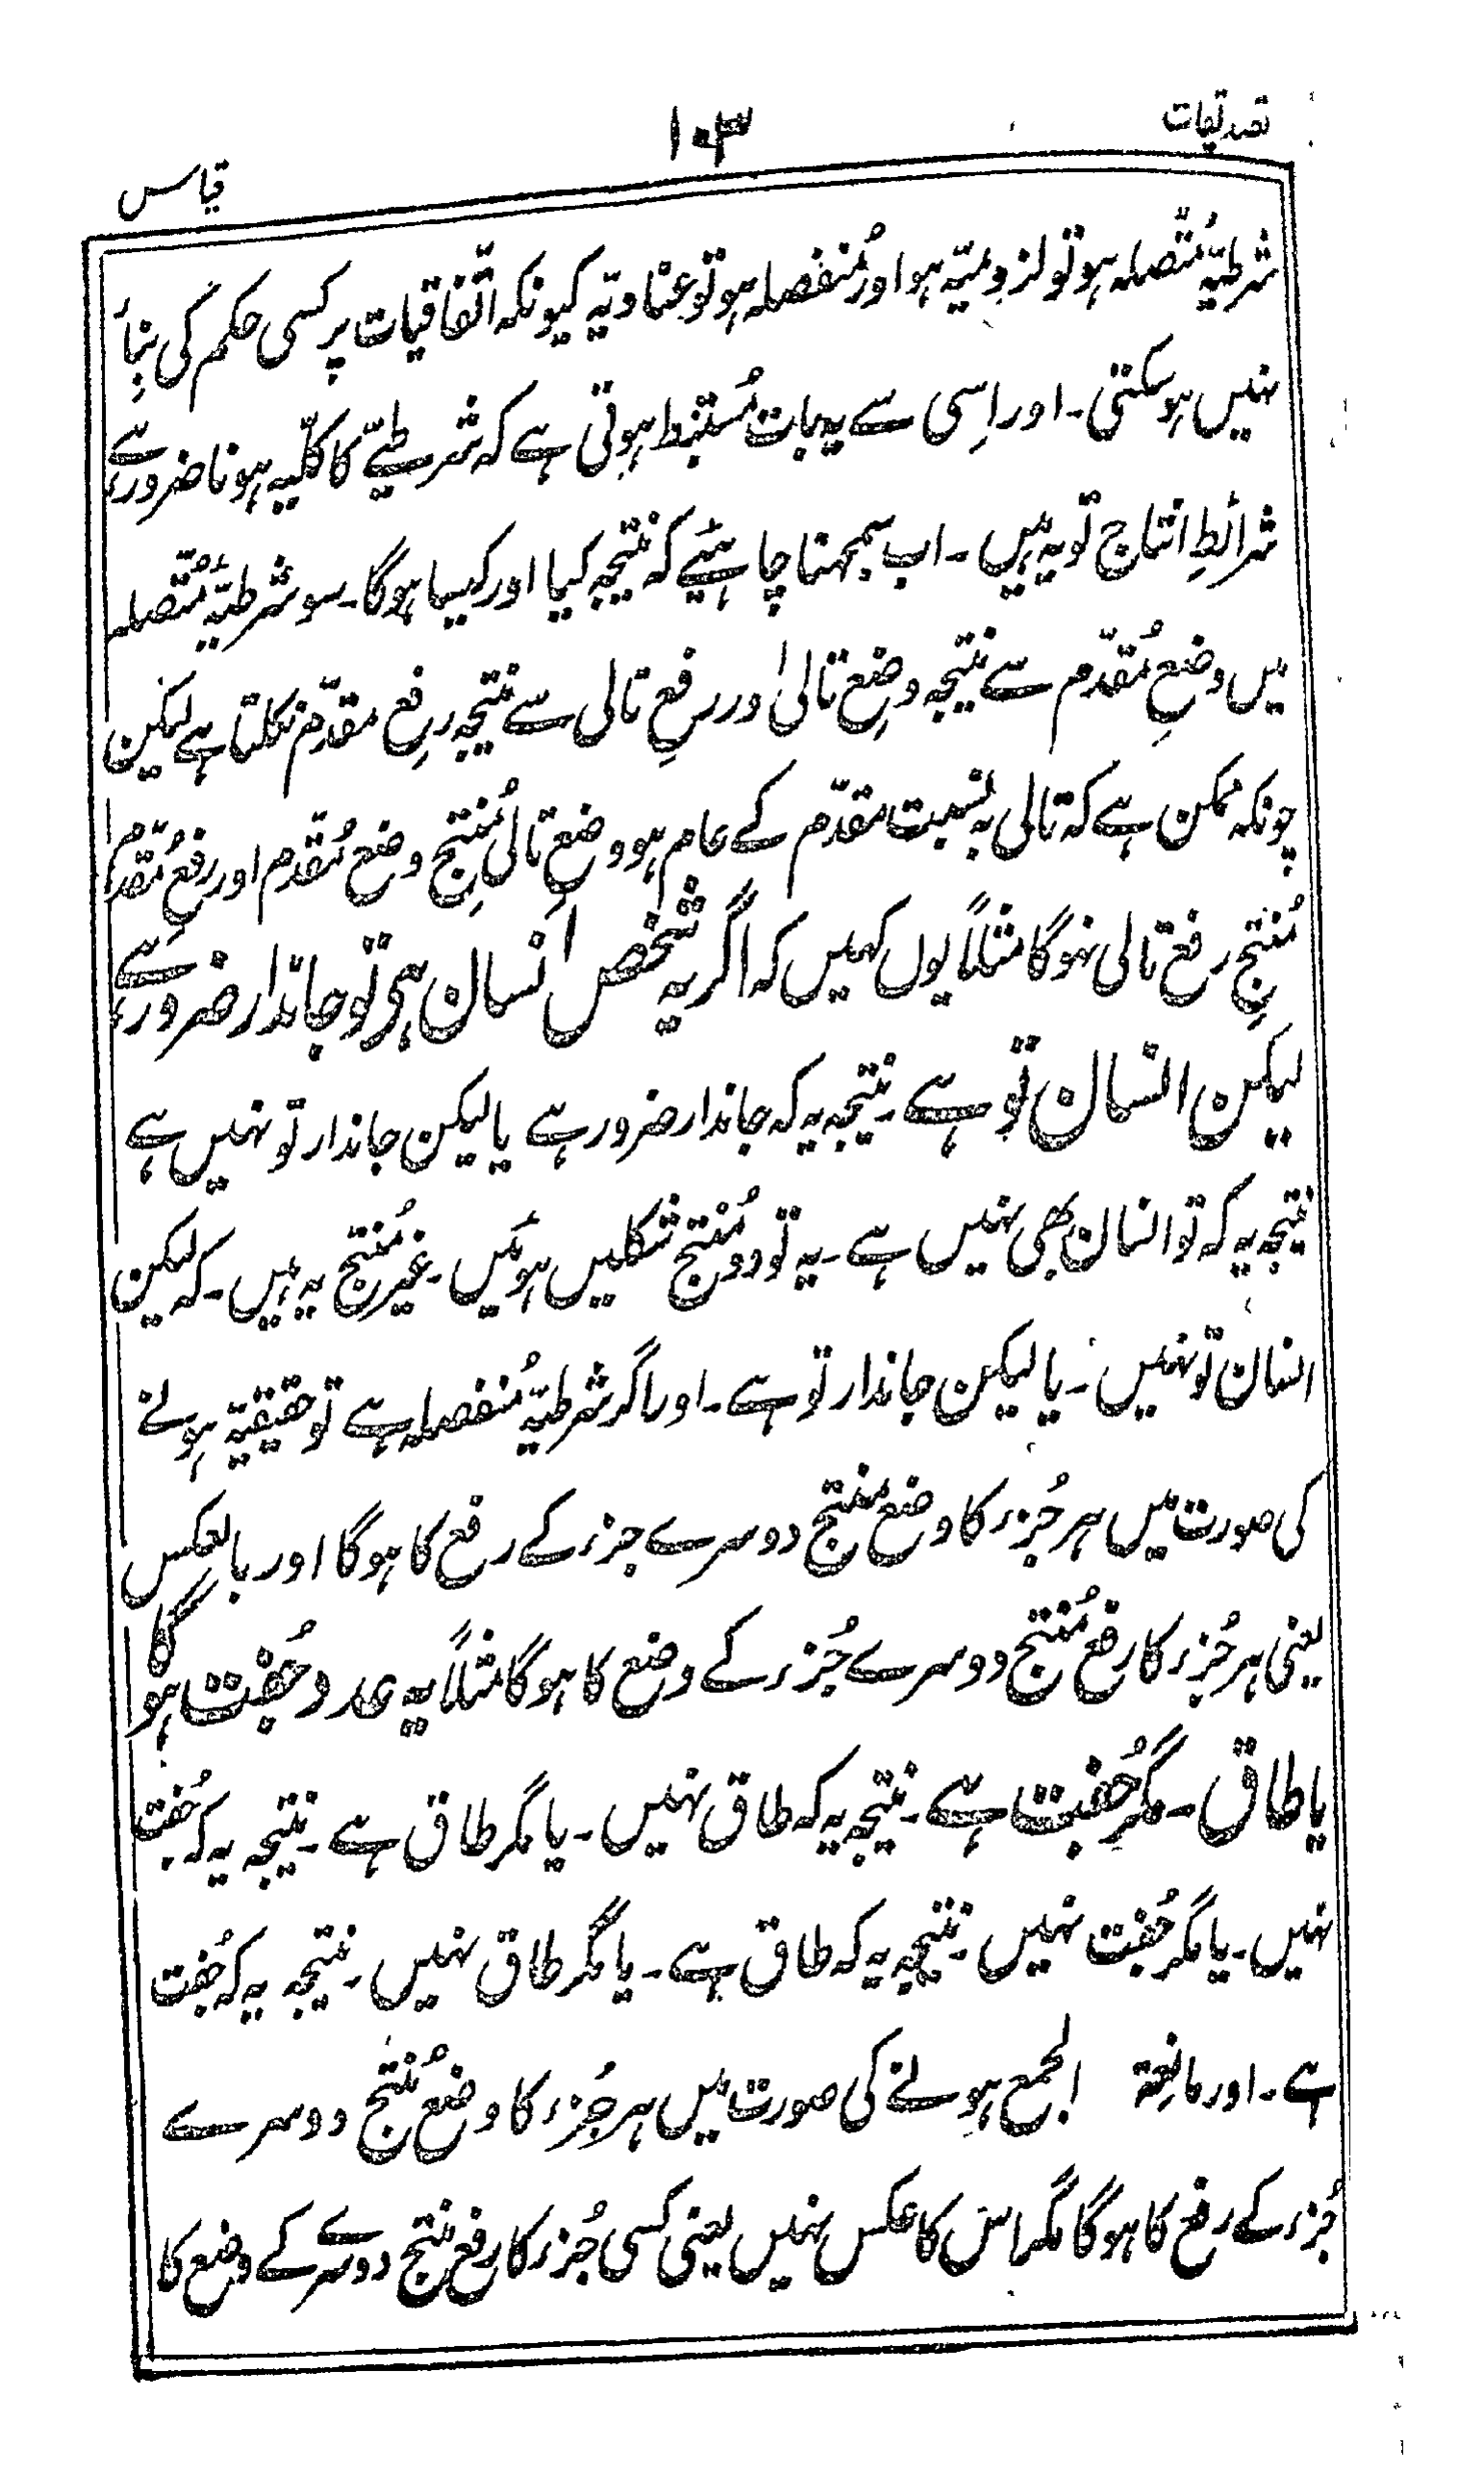 تصدیقات
۱۰۳
قیاس
شرطیّہ مُتّصلہ ہو تو لزومیّہ ہو اور مُنفصلہ ہو تو عنادیّہ کیونکہ اتّفاقیات پر کسی حکم کی بِنأ
نہیں ہو سکتی۔ اور اِسی سے یہ بات مُستنبط ہوتی ہے کہ شرطیّے کا کلّیہ ہونا ضرور ہے
شرائطِ انتاج تو یہ ہیں۔ اب سمجھنا چاہیئے کہ نتیجہ کیا اور کیسا ہوگا۔ سو شرطیّہ مُتّصلہ
میں وضعِ مُقدّم سے نتیجہ وضعِ تالی اور رفعِ تالی سے نتیجہ رفعِ مقدّم نکلتا ہے لیکن
چونکہ ممکن ہے کہ تالی بہ نسبت مقدّم کے عام ہو وضعِ تالی مُنتِج وضعِ مُقدّم اور رفعِ مُقدّم
مُنتِج رفعِ تالی نہوگا مثلاً یوں کہیں کہ اگر یہ شخص انسان ہی تو جاندار ضرور ہے
لیکن انسان تو ہے۔ نتیجہ یہ کہ جاندار ضرور ہے یا لیکن جاندار تو نہیں ہے
نتیجہ یہ کہ تو انسان بھی نہیں ہے۔ یہ تو دو مُنتج شکلیں ہوئیں۔ غیر مُنتج یہ ہیں۔ کہ لیکن
انسان تو نہیں۔ یا لیکن جاندار تو ہے۔ اور اگر شرطیّہ مُنفصلہ ہے تو حقیقیّہ ہونے
کی صورت میں ہر جُزء کا وضع منتج دوسرے جزء کے رفع کا ہوگا اور بالعکس
یعنی ہر جُزء کا رفع مُنتج دوسرے جُزء کے وضع کا ہوگا مثلاً یہ عدد جُفت ہوگا
یا طاق۔ مگر جُفت ہے۔ نتیجہ یہ کہ طاق نہیں۔ یا مگر طاق ہے۔ نتیجہ یہ کہ جُفت
نہیں۔ یا مگر جُفت نہیں۔ نتیجہ یہ کہ طاق ہے۔ یا مگر طاق نہیں۔ نتیجہ یہ کہ جُفت
ہے۔ اور مانعۃ الجمع ہونے کی صورت میں ہر جُزء کا وضع مُنتج دوسرے
جُزء کے رفع کا ہوگا مگر اس کا عکس نہیں یعنی کسی جُزء کا رفع منتج دوسرے کے وضع کا